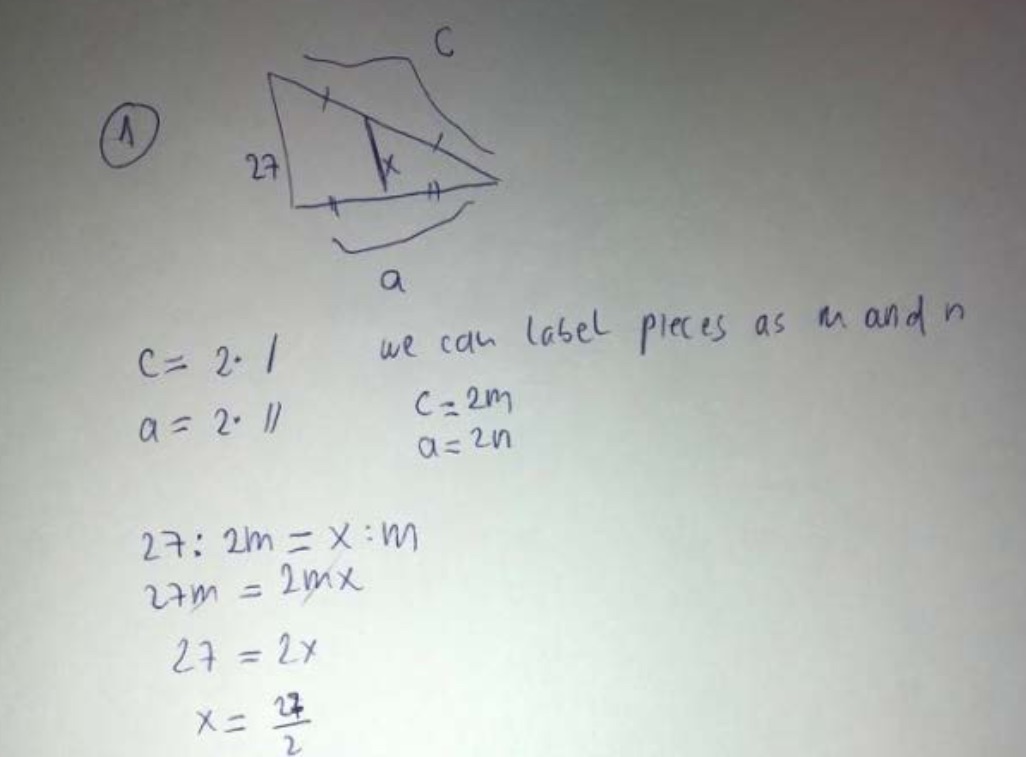 1
C
27
x
a
C = 2 · / we can label pieces as m and n
a = 2 · // C = 2m
a = 2n
27 : 2m = x : m
27m = 2mx
27 = 2x
x = 27/2